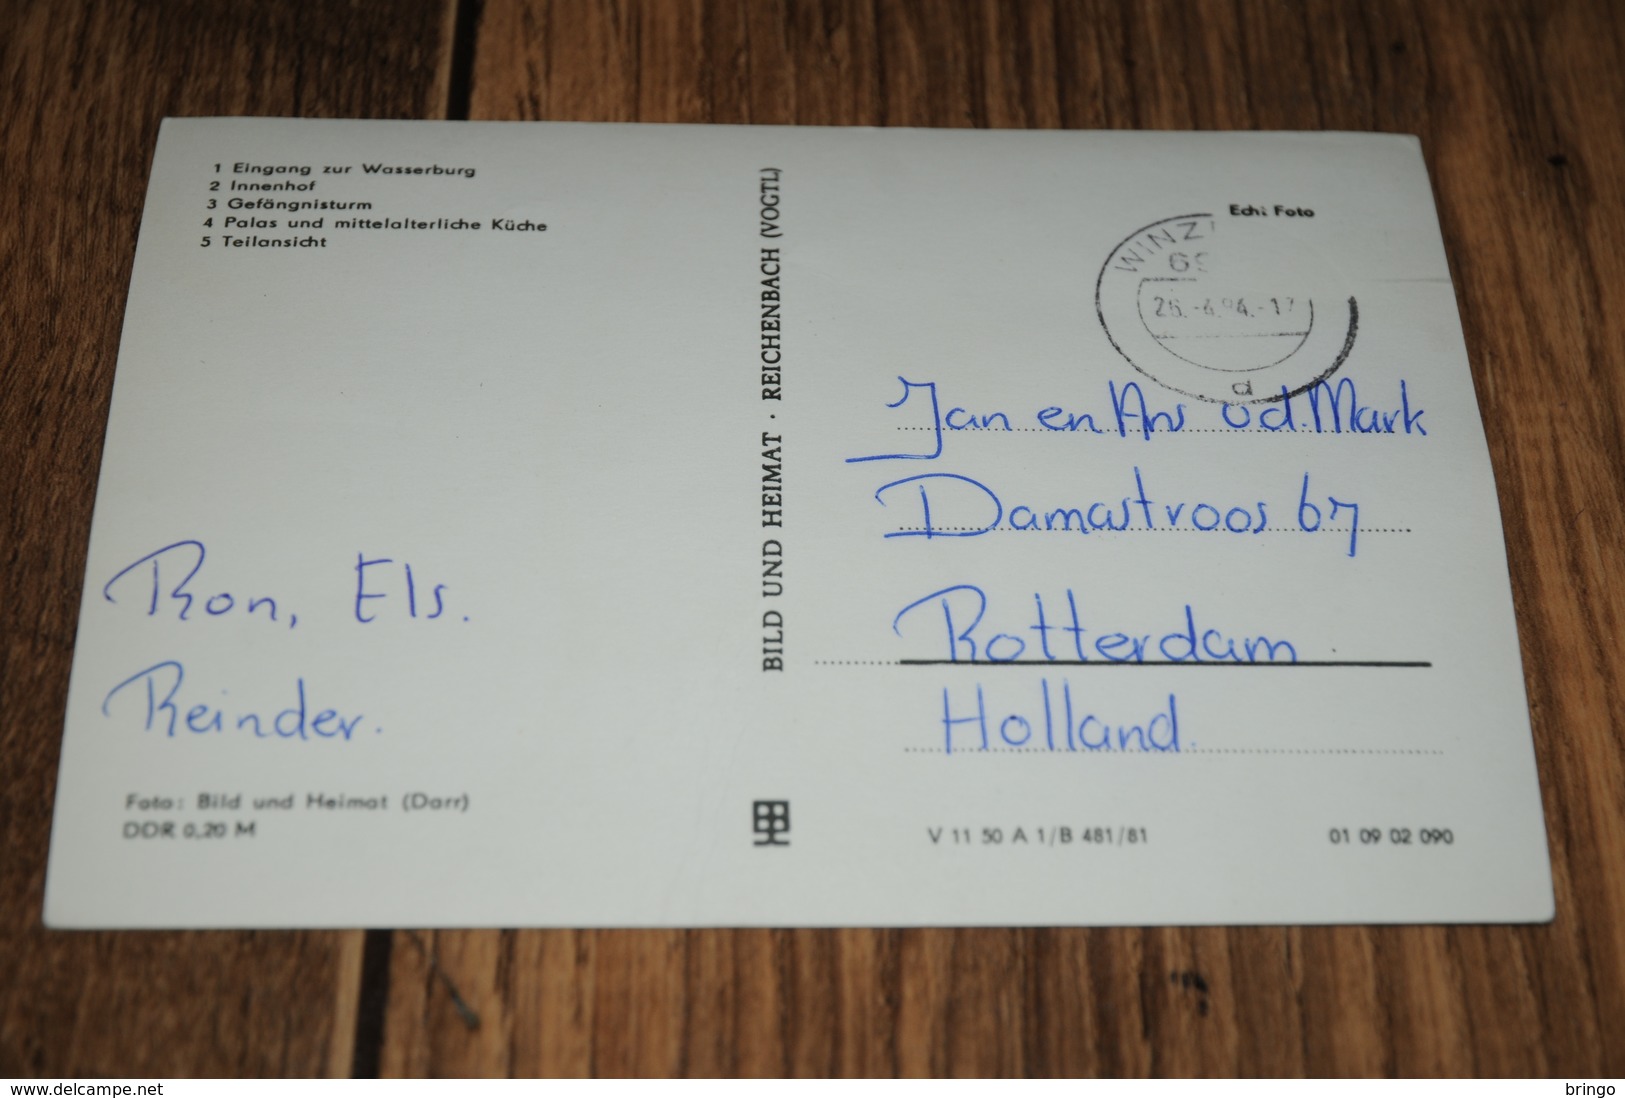 1 Eingang zur Wasserburg
2 Innenhof
3 Gefängnisturm
4 Palas und mittelalterliche Küche
5 Teilansicht
Ron, Els.
Reinder.
Foto: Bild und Heimat (Darr)
DDR 0,20 M
BILD UND HEIMAT · REICHENBACH (VOGTL)
Echt Foto
WINZ
69
26.-4.94.-17
d
Jan en Ans v d. Mark
Damastroos 67
Rotterdam
Holland.
V 11 50 A 1/B 481/81
01 09 02 090
www.delcampe.net
bringo